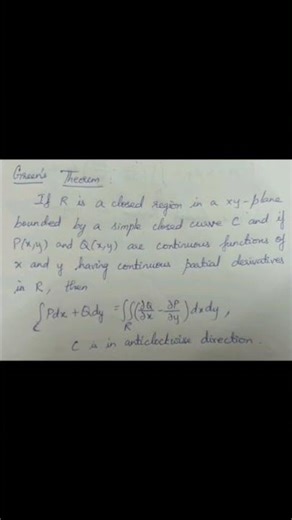 Green's Theorem
If R is a closed region in a xy-plane
bounded by a simple closed curve C and if
P(x,y) and Q(x,y) are continuous functions of
x and y having continuous partial derivatives
in R, then
∫Pdx + Qdy = ∬_R (∂Q/∂x - ∂P/∂y) dx dy,
C is in anticlockwise direction.